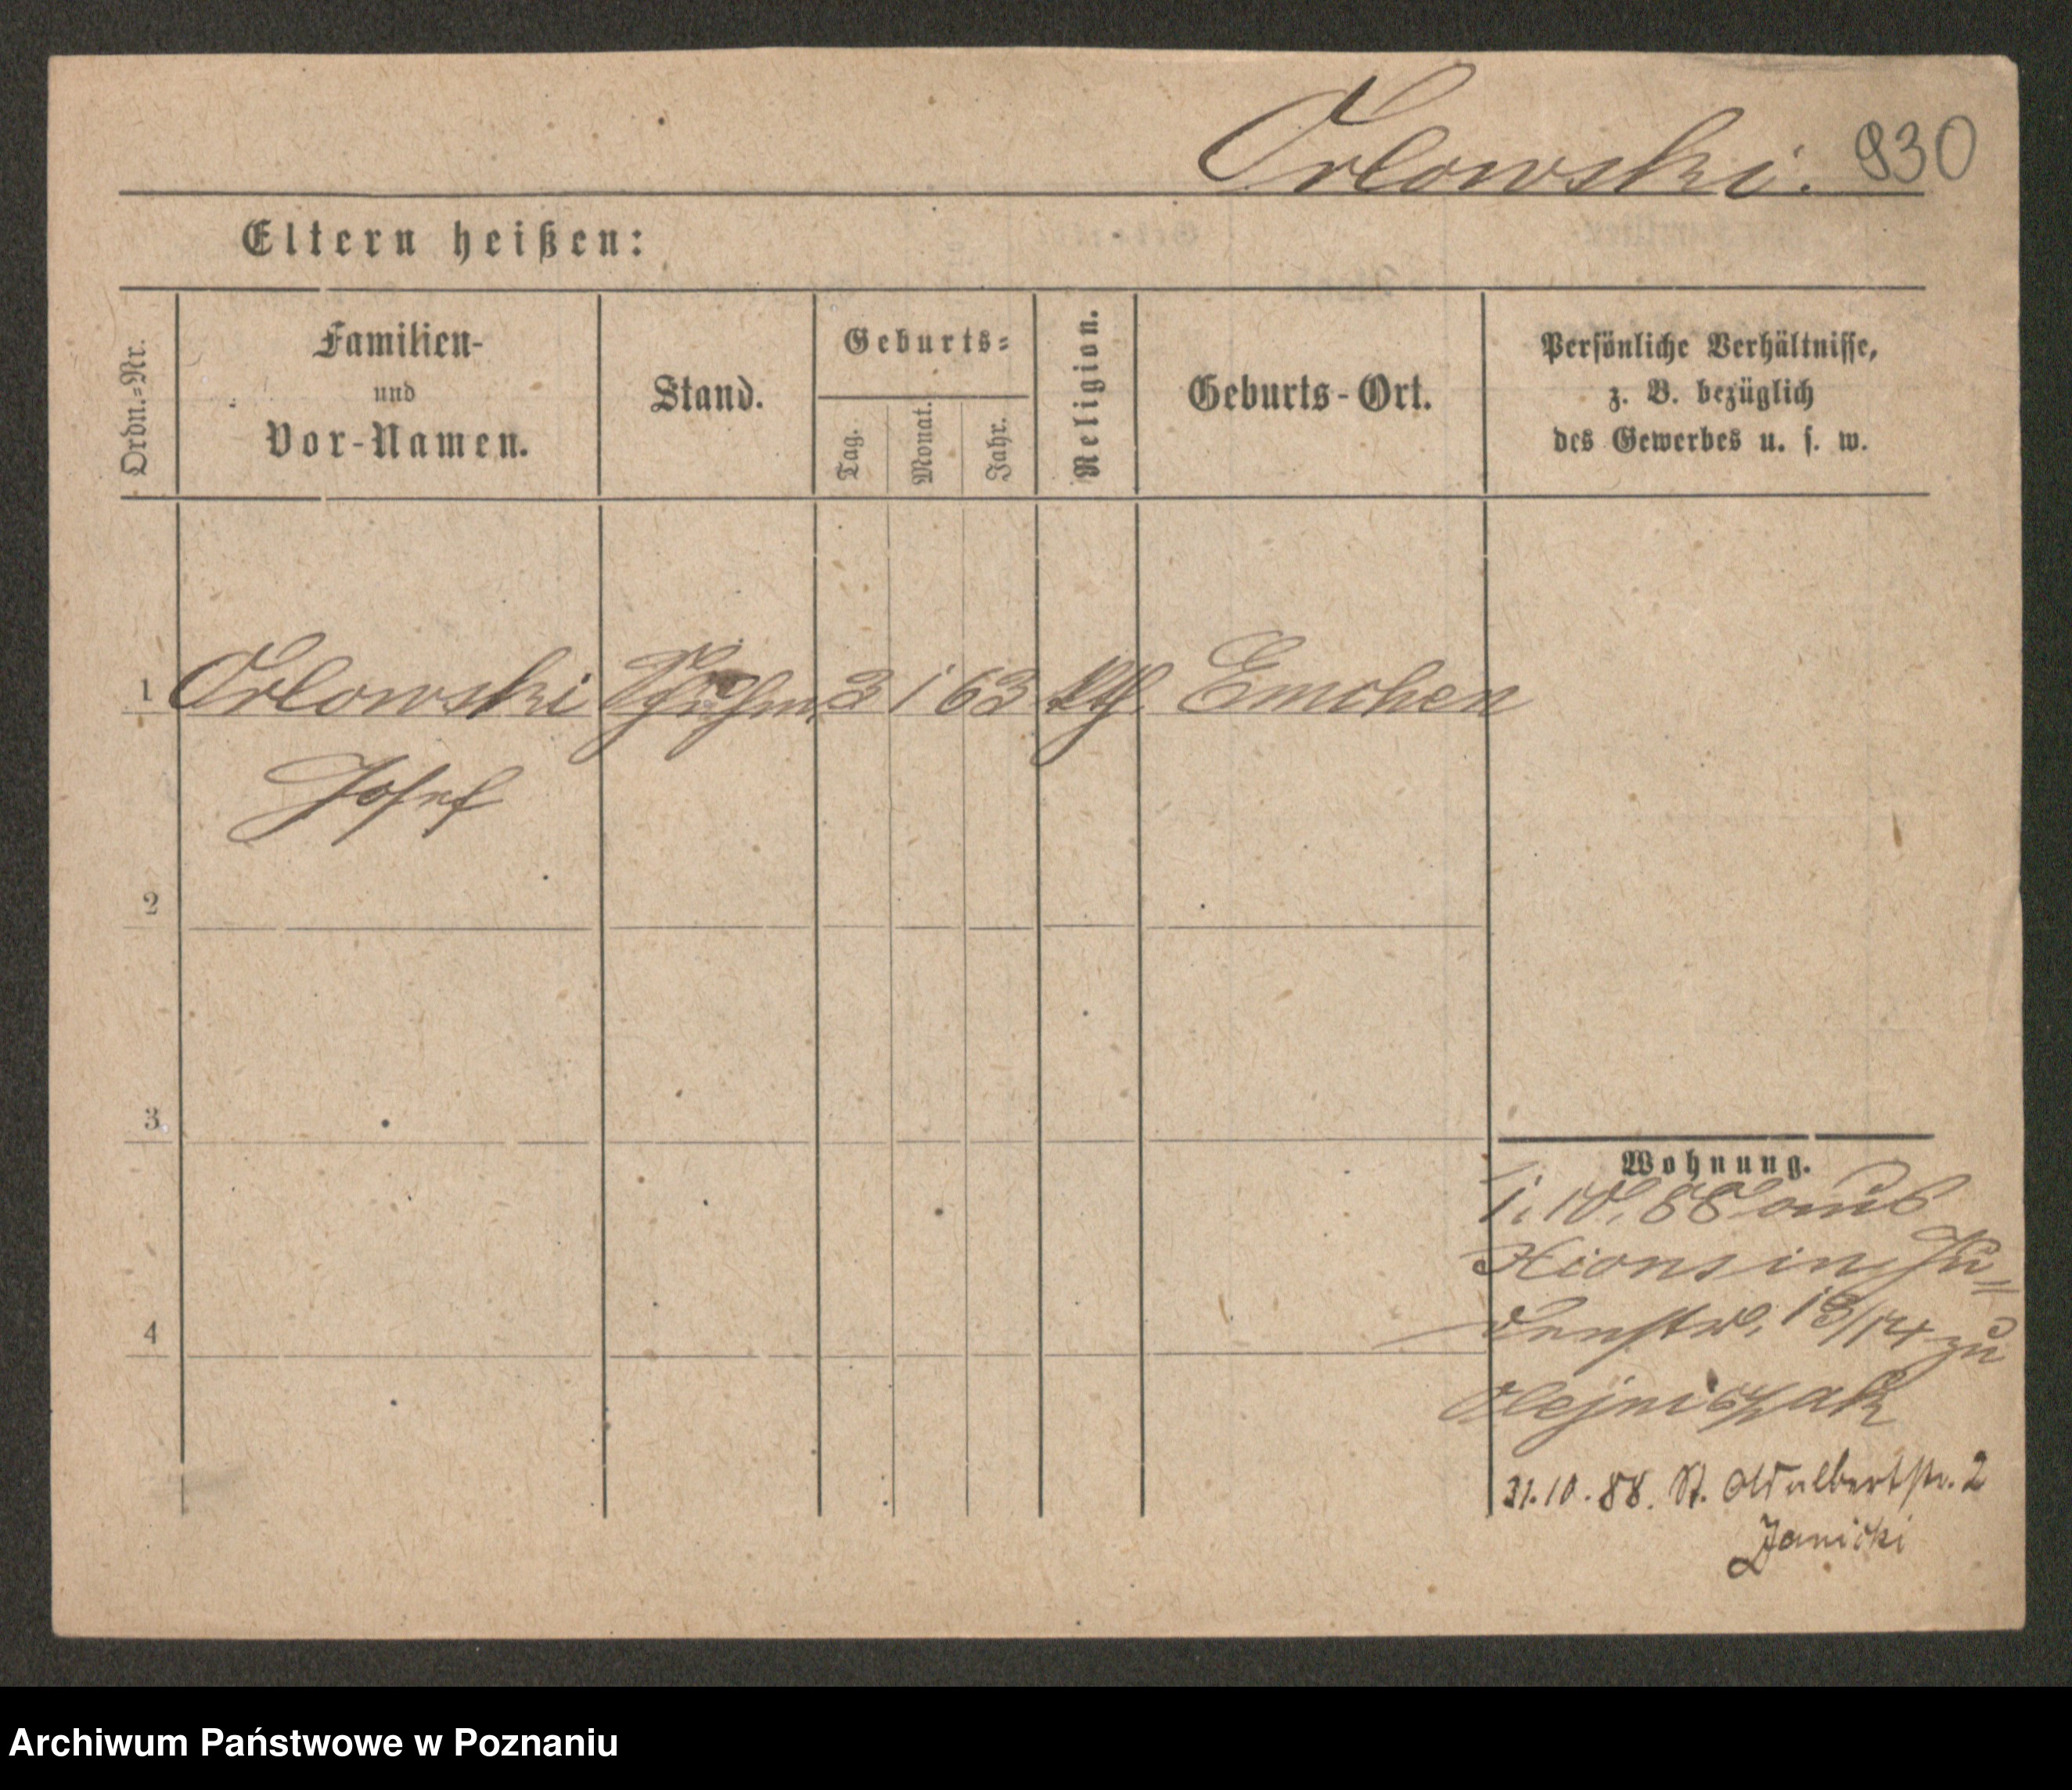 Orlowski. 930
Eltern heißen:
Ordn.-Nr.
Familien-
und
Vor-Namen.
Stand.
Geburts-
Tag.
Monat.
Jahr.
Religion.
Geburts-Ort.
Persönliche Verhältnisse,
z. B. bezüglich
des Gewerbes u. s. w.
1 Orlowski 3 1 63 kth. Emchen
Josef
2
3
4
Wohnung.
1. 10. 88 aus
Xions in Ju-
denstr. 13/14 zu
Olejniczak
31.10.88. St. Adalbertstr. 2
Janicki
Archiwum Państwowe w Poznaniu